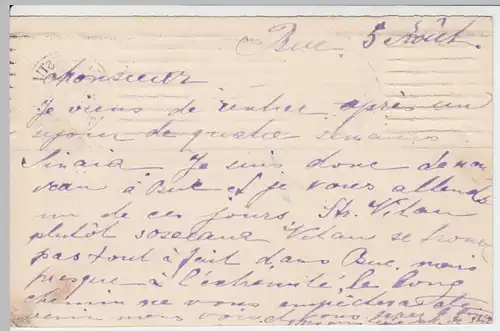 Buc. 5 Août.
Monsieur
Je viens de rentrer après un
séjour de quatre semaines
Sinaia. Je suis donc de nou
veau à Buc et je vous attends
un de ces jours. Str. Vitan
plutôt soseaua Vitan se trouve
pas tout à fait dans Buc. mais
presque à l'extrémité, le long
chemin ne vous empêchera
venir nous voir